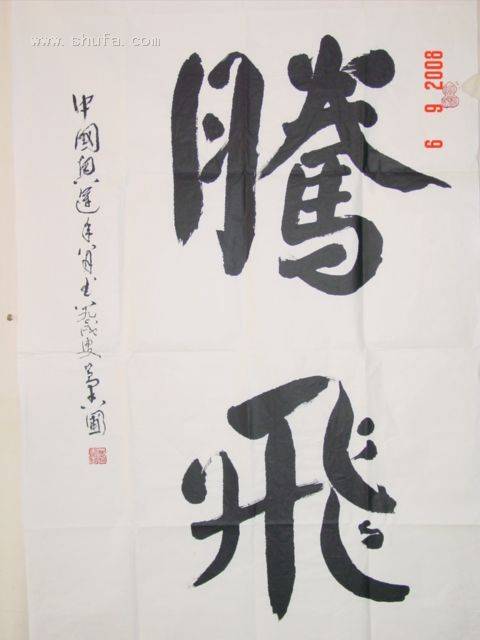 www.shufa.com
6 9 2008
騰飛
中國奧運年八月书